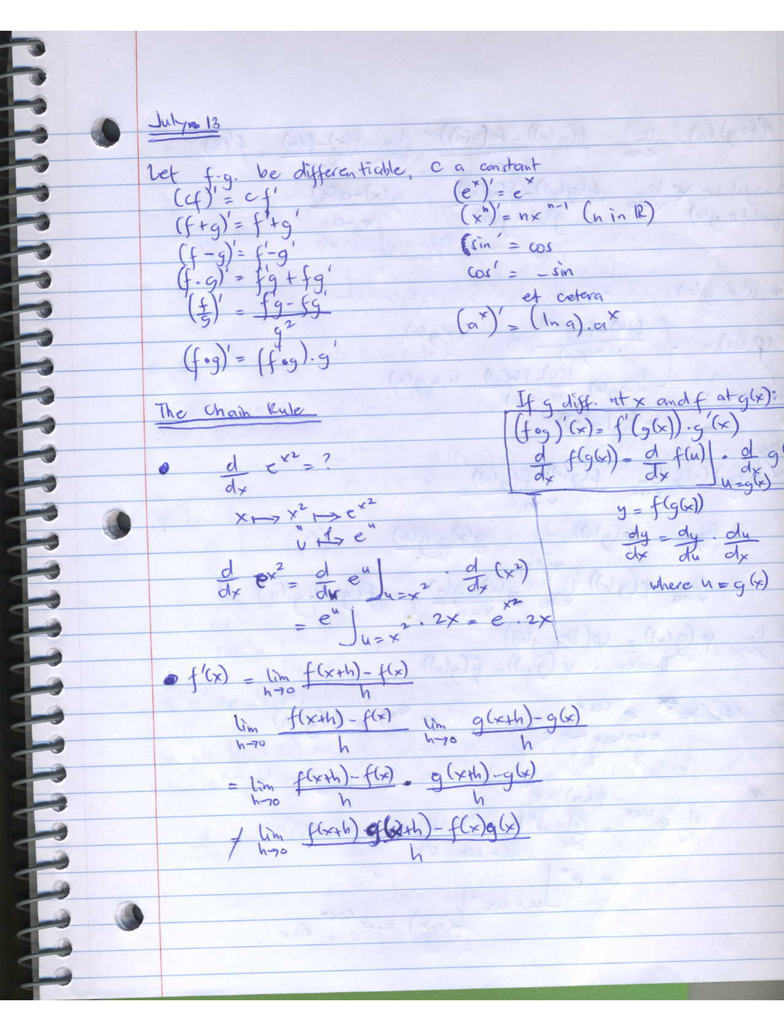 July 13
Let f.g. be differentiable, c a constant
(cf)' = cf'
(f+g)' = f'+g'
(f-g)' = f'-g'
(f·g)' = f'g + fg'
(f/g)' = (f'g - fg')/g²
(f∘g)' = (f'∘g)·g'
(eˣ)' = eˣ
(xⁿ)' = nxⁿ⁻¹ (n in ℝ)
sin' = cos
cos' = -sin
et cetera
(aˣ)' = (ln a)·aˣ
The Chain Rule
If g diff. at x and f at g(x):
(f∘g)'(x) = f'(g(x))·g'(x)
d/dx f(g(x)) = d/dx f(u)]u=g(x) · d/dx g
y = f(g(x))
dy/dx = dy/du · du/dx
where u = g(x)
• d/dx e^x² = ?
x ↦ x² ↦ e^x²
u ↦ e^u
d/dx e^x² = d/du e^u]u=x² · d/dx (x²)
= e^u]u=x² · 2x = e^x² · 2x
• f'(x) = lim h→0 (f(x+h)-f(x))/h
lim h→0 (f(x+h)-f(x))/h lim h→0 (g(x+h)-g(x))/h
= lim h→0 (f(x+h)-f(x))/h · (g(x+h)-g(x))/h
≠ lim h→0 (f(x+h)g(x+h)-f(x)g(x))/h